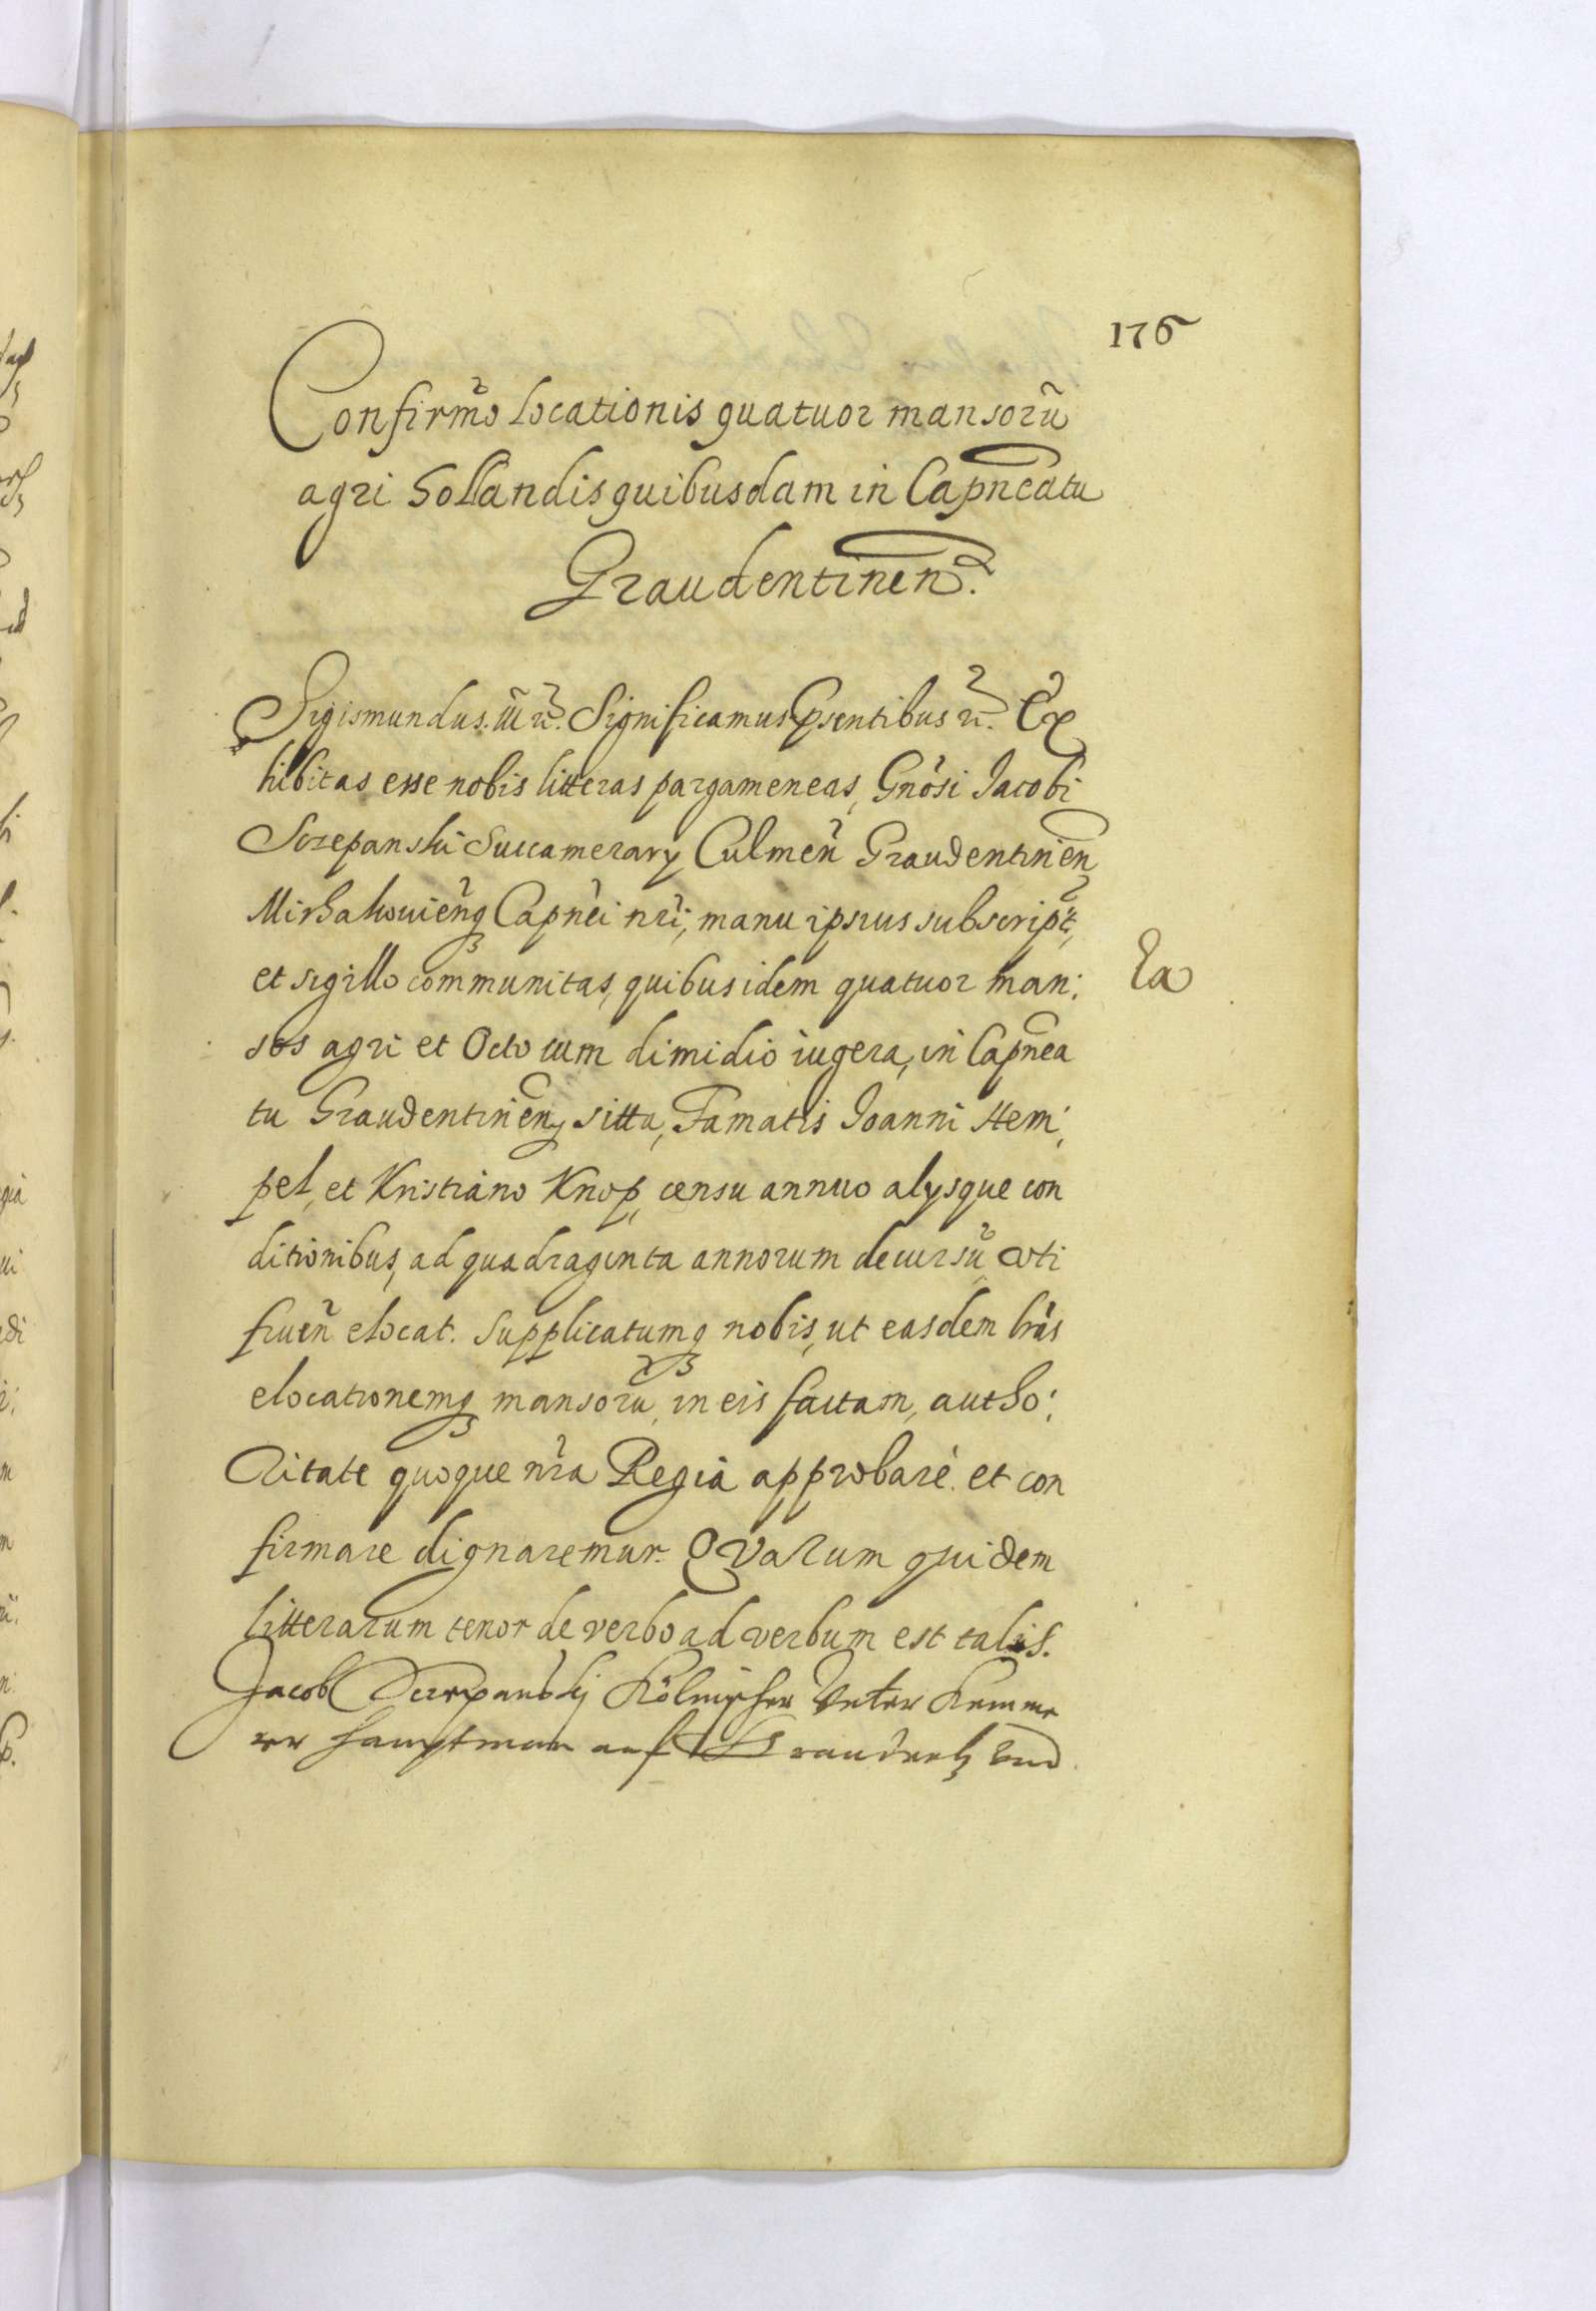 176
Confirm̃o locationis quatuor mansorũ
agri Hollandis quibusdam in Capñeatu
Graudentineñ.
Sigismundus iii etc. Significamus p̃sentibus etc. Ex
hibitas esse nobis litteras pargameneas, Gñosi Jacobi
Sczepanski Succamerarÿ Culmeñ Graudentineñ
Mirhakowieñq Capñei nr̃i, manu ipsius subscript̃,
et sigillo communitas, quibus idem quatuor man:
sos agri et Octo cum dimidio iugera, in Capñea
tu Graudentineñ sitta, Famatis Joanni Hem:
pel, et Kristiano Knop, censu annuo alÿsque con
ditionibus, ad quadraginta annorum decursũ vti
frueñ elocat. Supplicatumq nobis, ut easdem lr̃as
elocationemq mansorũ, in eis factam, autho:
ritate quoque nr̃a Regia approbare et con
firmare dignaremur. Qvarum quidem
litterarum tenor de verbo ad verbum est talis.
Jacob Sczepanskÿ Kölmischer Unter Kemme
rer Hauptman auf Graudentz und
Ea